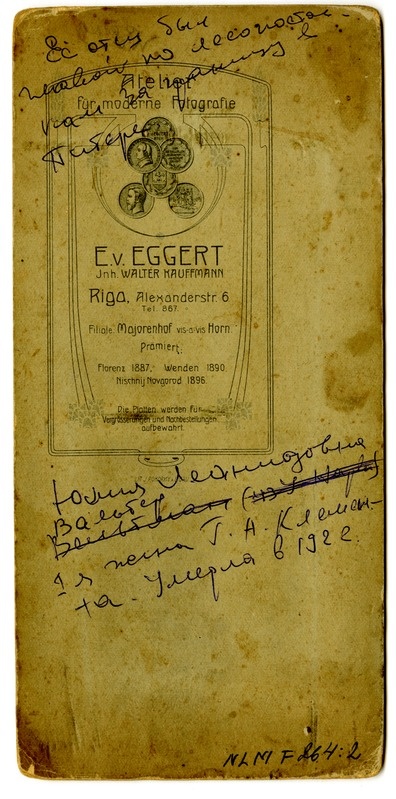 Её отец был
главой по лесопостав-
кам за границу в
Питере
Atelier
für moderne Fotografie
E.v. EGGERT
Jnh. WALTER KAUFFMANN
Riga, Alexanderstr. 6
Tel. 867.
Filiale: Majorenhof vis-a-vis Horn.
Prämiert:
Florenz 1887, Wenden 1890.
Nischnij Novgorod 1896.
Die Platten werden für
Vergrösserungen und Nachbestellungen
aufbewahrt.
Юлия Леонидовна
Вальтер
Вельтман (из
1я жена Г. А. Клемен-
та. Умерла в 1922.
NLM F 264:2